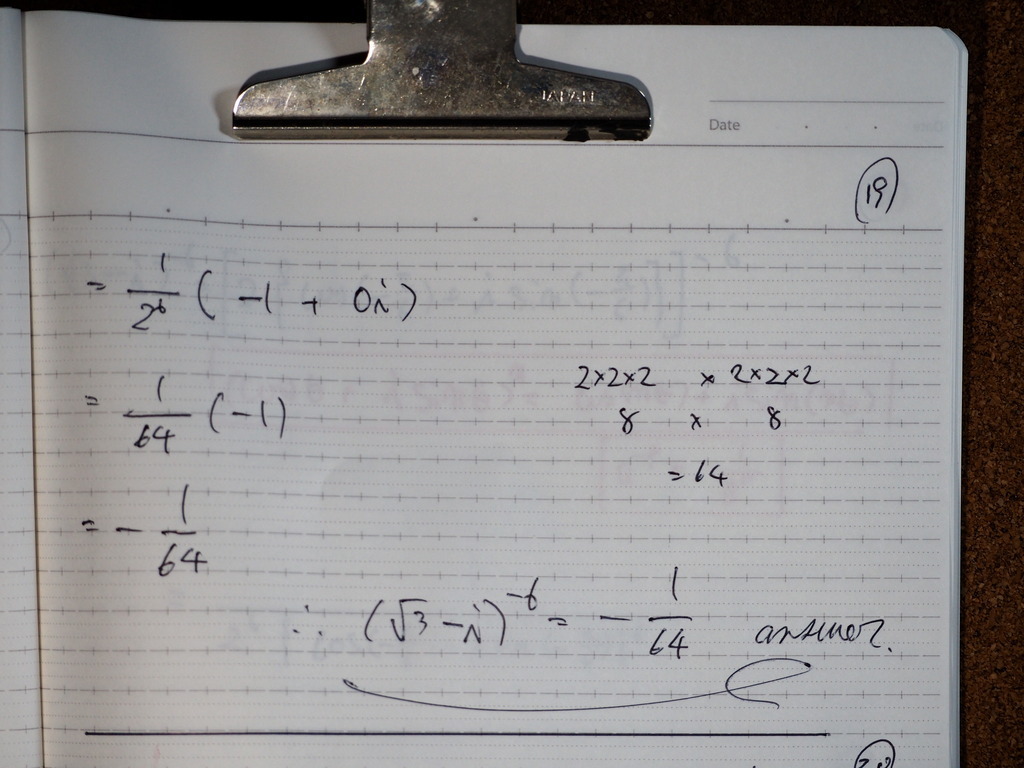 JAPAN
Date
19
= 1/2⁶ ( -1 + 0i )
2×2×2 × 2×2×2
= 1/64 (-1)
8 × 8
= 64
= - 1/64
∴ (√3 - i)⁻⁶ = - 1/64 answer.